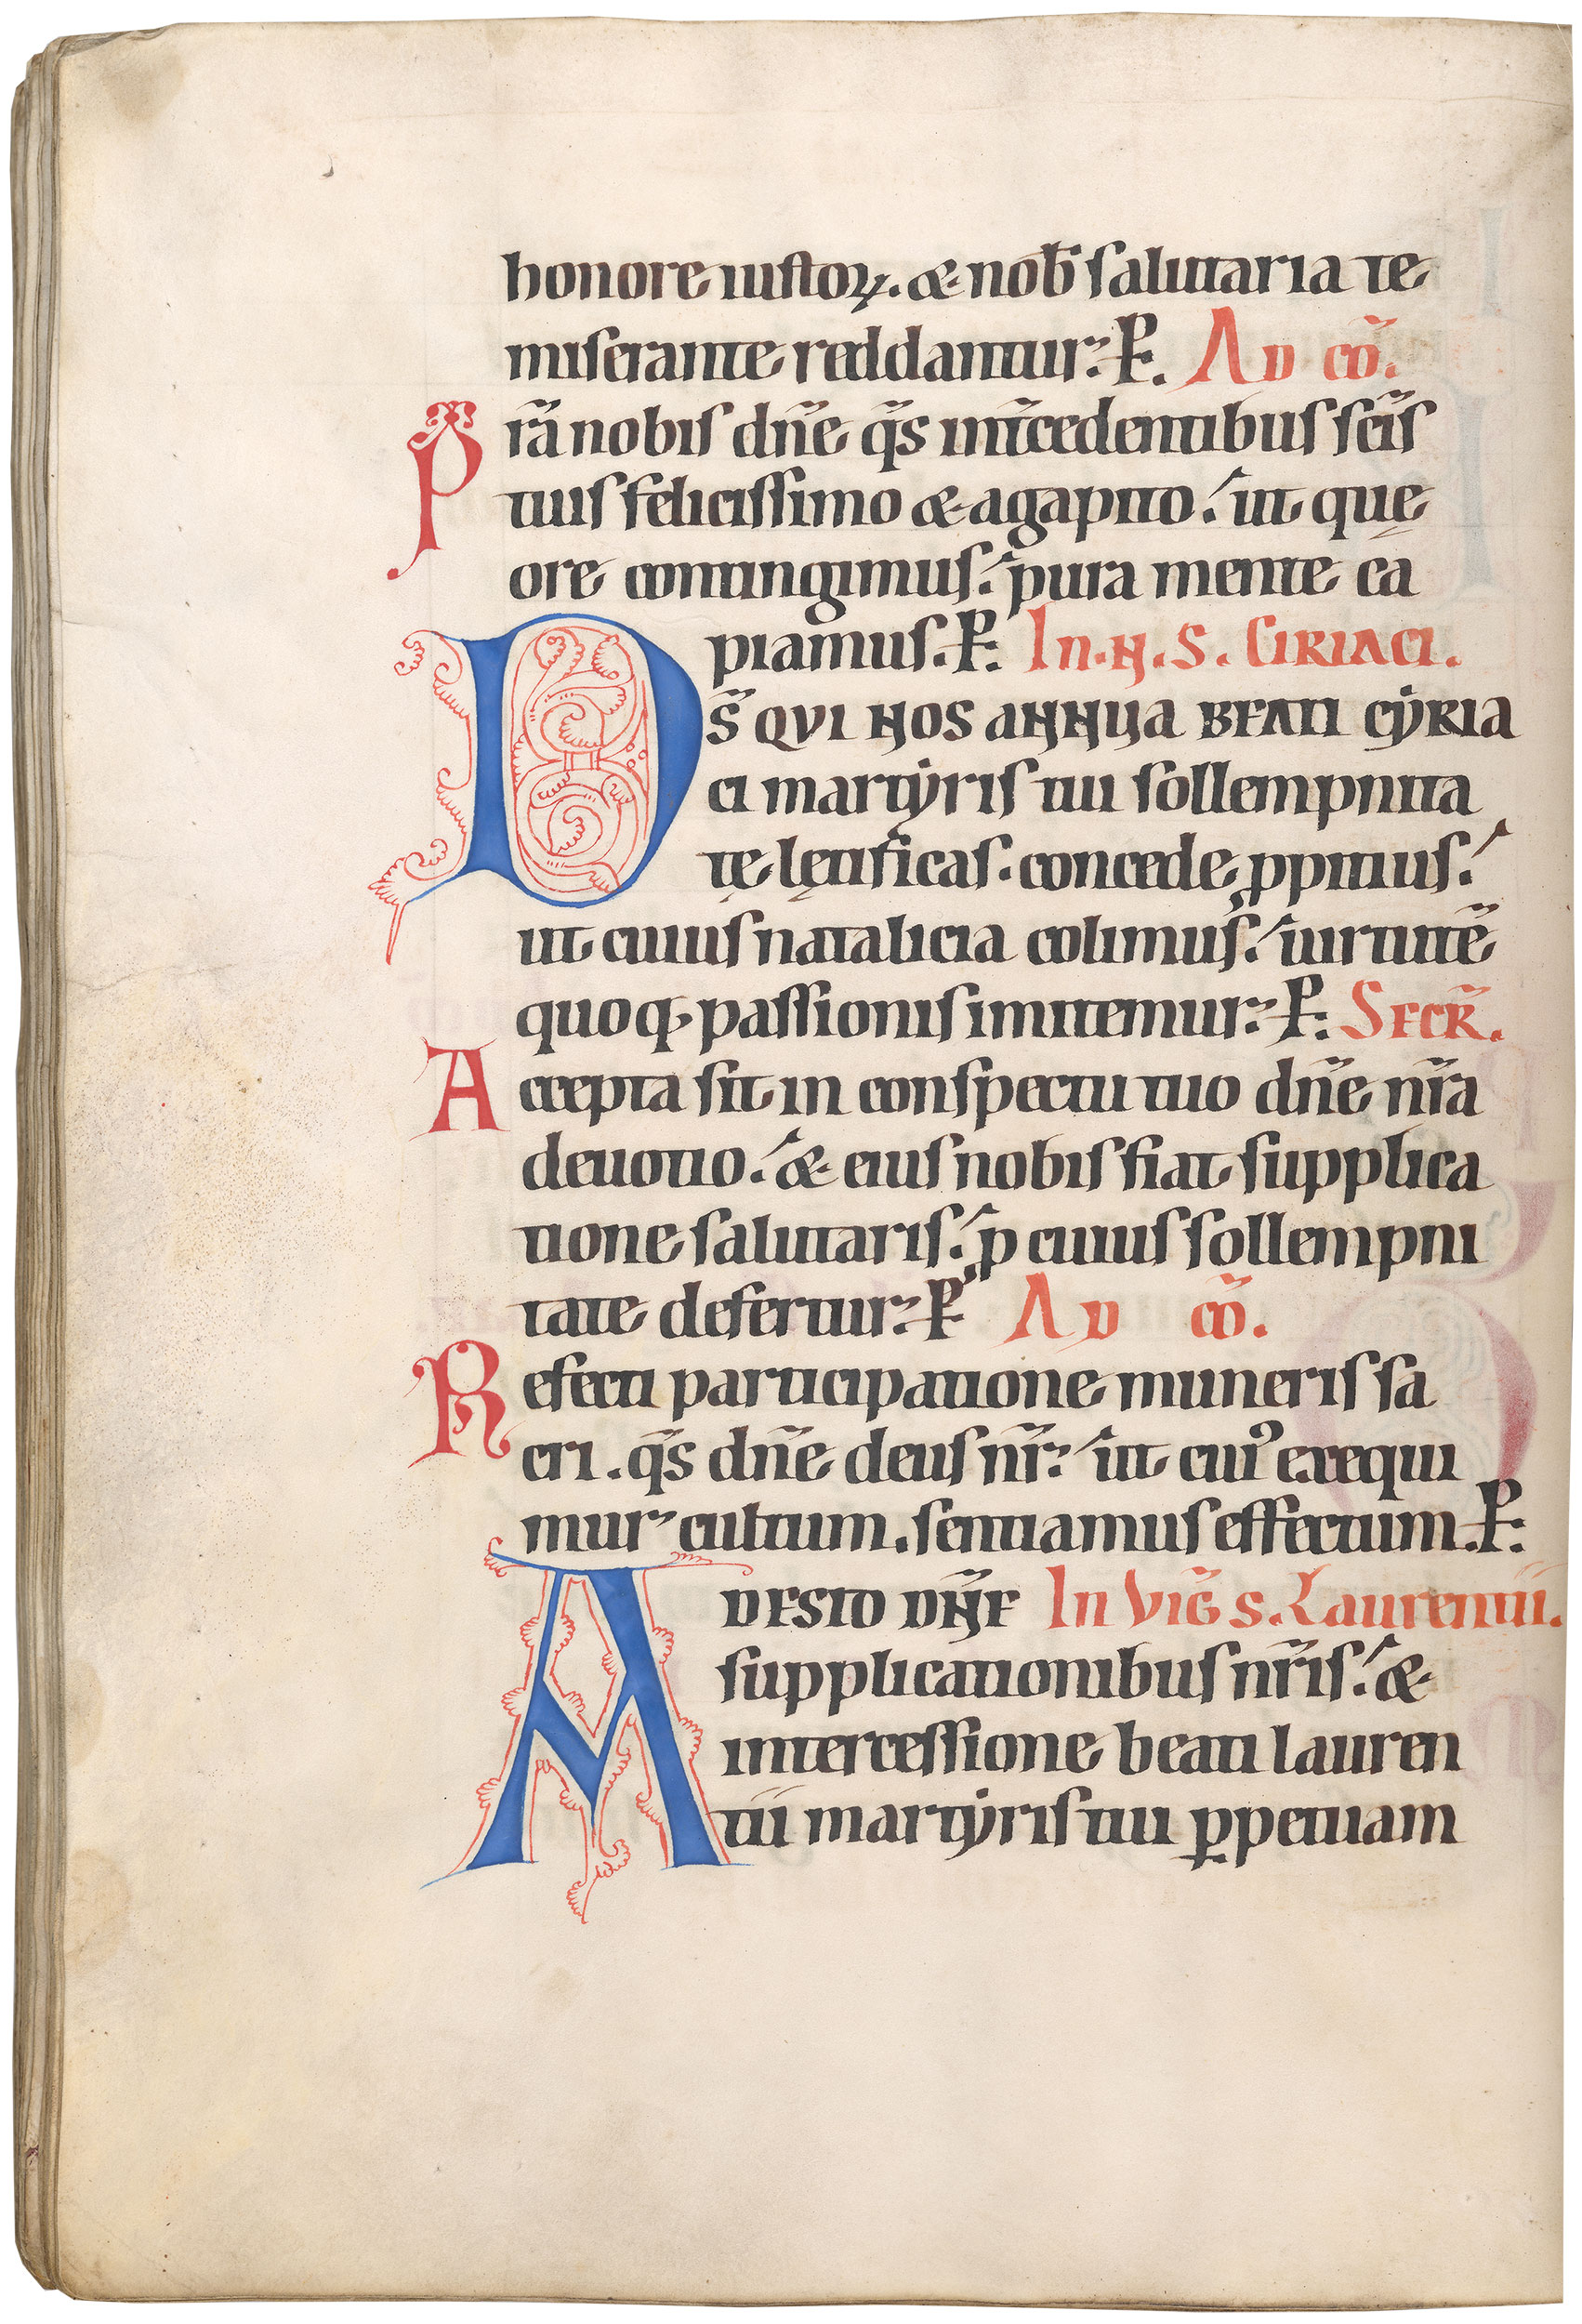 honore iustoꝝ. & nob̄ salutaria te
miserante reddantur: P̱. Ad cō.
Prā nobis dn̄e q̄s int̄cedentibus sc̄is
tuis felicissimo & agapito: ut quę
ore contingimus: pura mente ca
piamus. P̱. In. N. S. Ciriaci.
Ds̄ qui nos annua beati cẏria
ci martẏris tui sollempnita
tę lętificas. concede ꝓpitius:
ut cuius natalicia colimus: uirtutē
quoq; passionis imitemur: P̱: Secr̄.
Accepta sit in conspectu tuo dn̄e nr̄a
deuotio: & eius nobis fiat supplica
tione salutaris: p cuius sollempni
tate defertur: P̱ Ad cō.
Refecti participatione muneris sa
cri. q̄s dn̄e deus nr̄: ut cuiꝰ exequi
mur cultum. sentiamus effectum. P̱:
Adesto dn̄e In Viḡ s. Laurentii.
supplicationibus nr̄is: &
intercessione beati lauren
tii martẏris tui ꝑpetuam